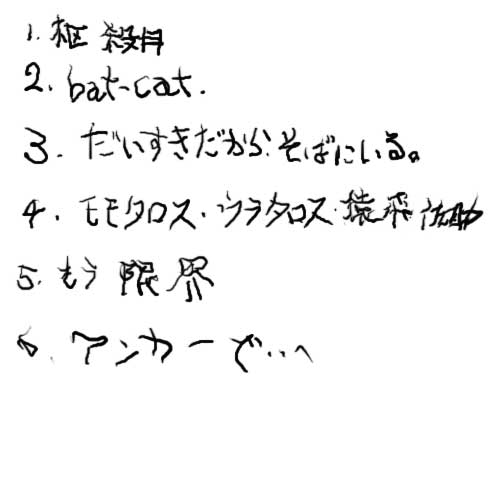 1. 枢 殺月
2. bat-cat.
3. だいすきだからそばにいる。
4. モモタロス・ウラタロス・猿飛佐助
5. もう限界
6. アンカーで…へ